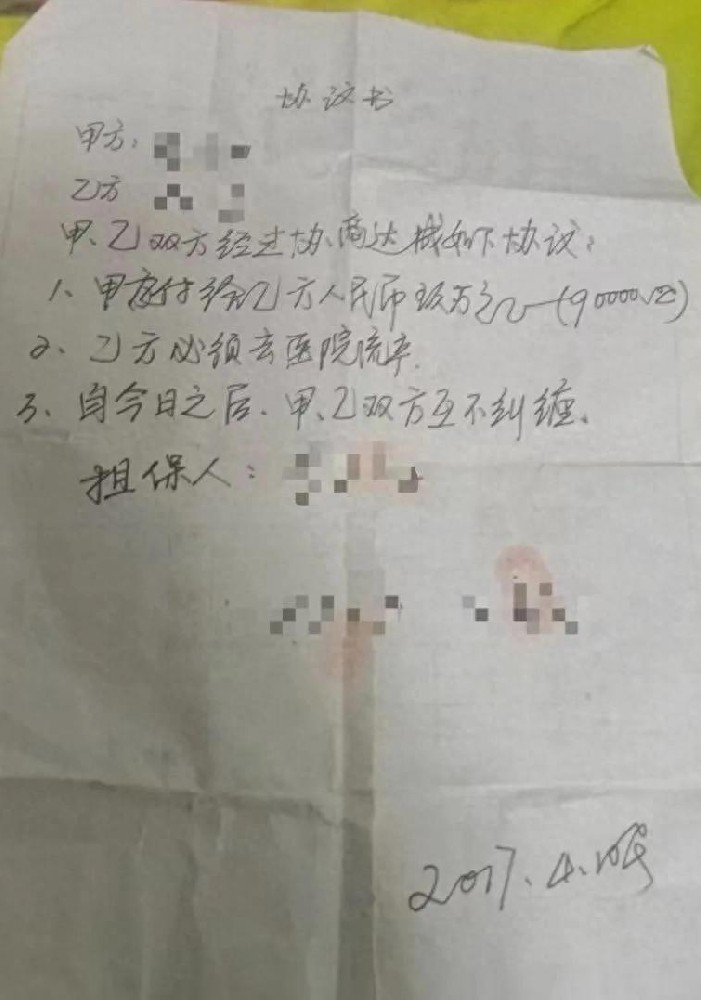 协议书
甲方:
乙方
甲、乙双方经过协商达成如下协议:
1、甲方付给乙方人民币玖万元(90000
2、乙方必须去医院流产.
3、自今日之后、甲、乙双方互不纠缠、
担保人:
2017.4.